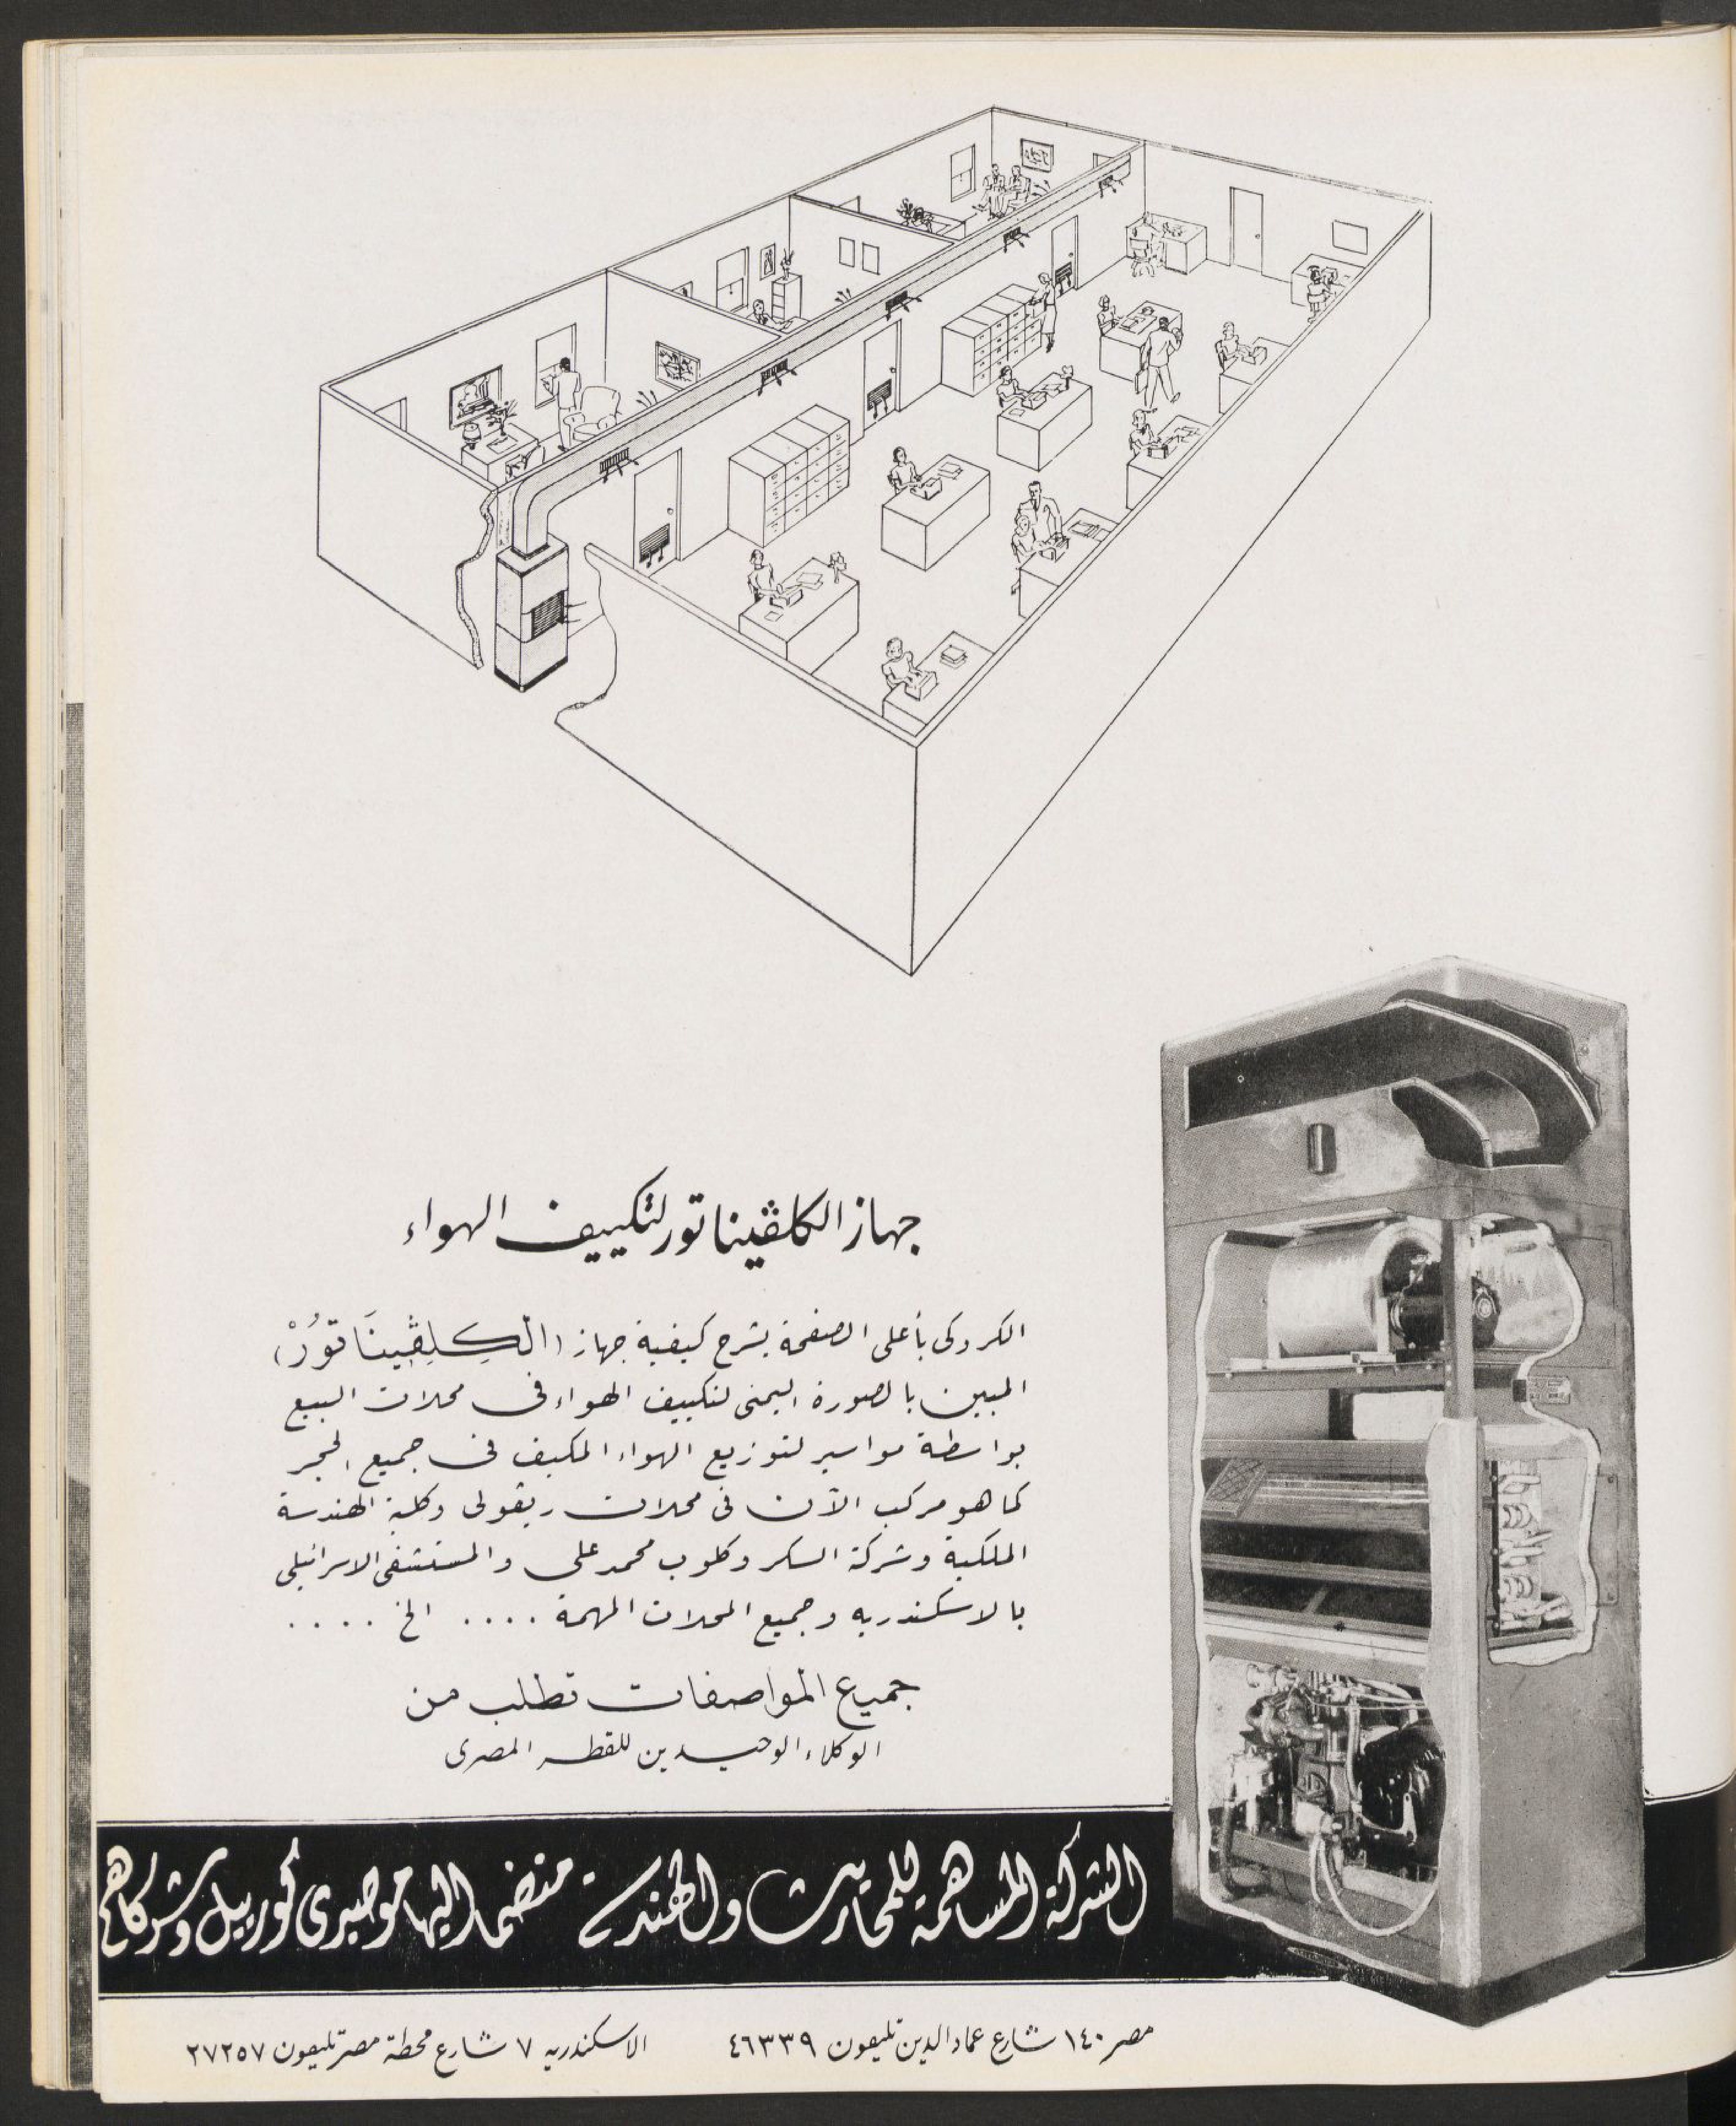 جهاز الكلڤيناتور لتكييف الهواء
الكروكى بأعلى الصفحة يشرح كيفية جهاز (الكِلِڤِينَاتورْ)
المبين بالصورة اليمنى لتكييف الهواء فى محلات البيع
بواسطة مواسير لتوزيع الهواء المكيف فى جميع الحجر
كما هو مركب الآن فى محلات ريڤولى وكلية الهندسة
الملكية وشركة السكر وكلوب محمد على والمستشفى الاسرائيلى
بالاسكندريه وجميع المحلات المهمة .... الخ ....
جميع المواصفات تطلب من
الوكلاء الوحيدين للقطر المصرى
الشركة المساهمة للمحاريث والهندسة منضما اليها موصيرى كورييل وشركاهم
مصر ١٤٠ شارع عماد الدين تليفون ٤٦٣٣٩
الاسكندريه ٧ شارع محطة مصر تليفون ٢٧٢٥٧